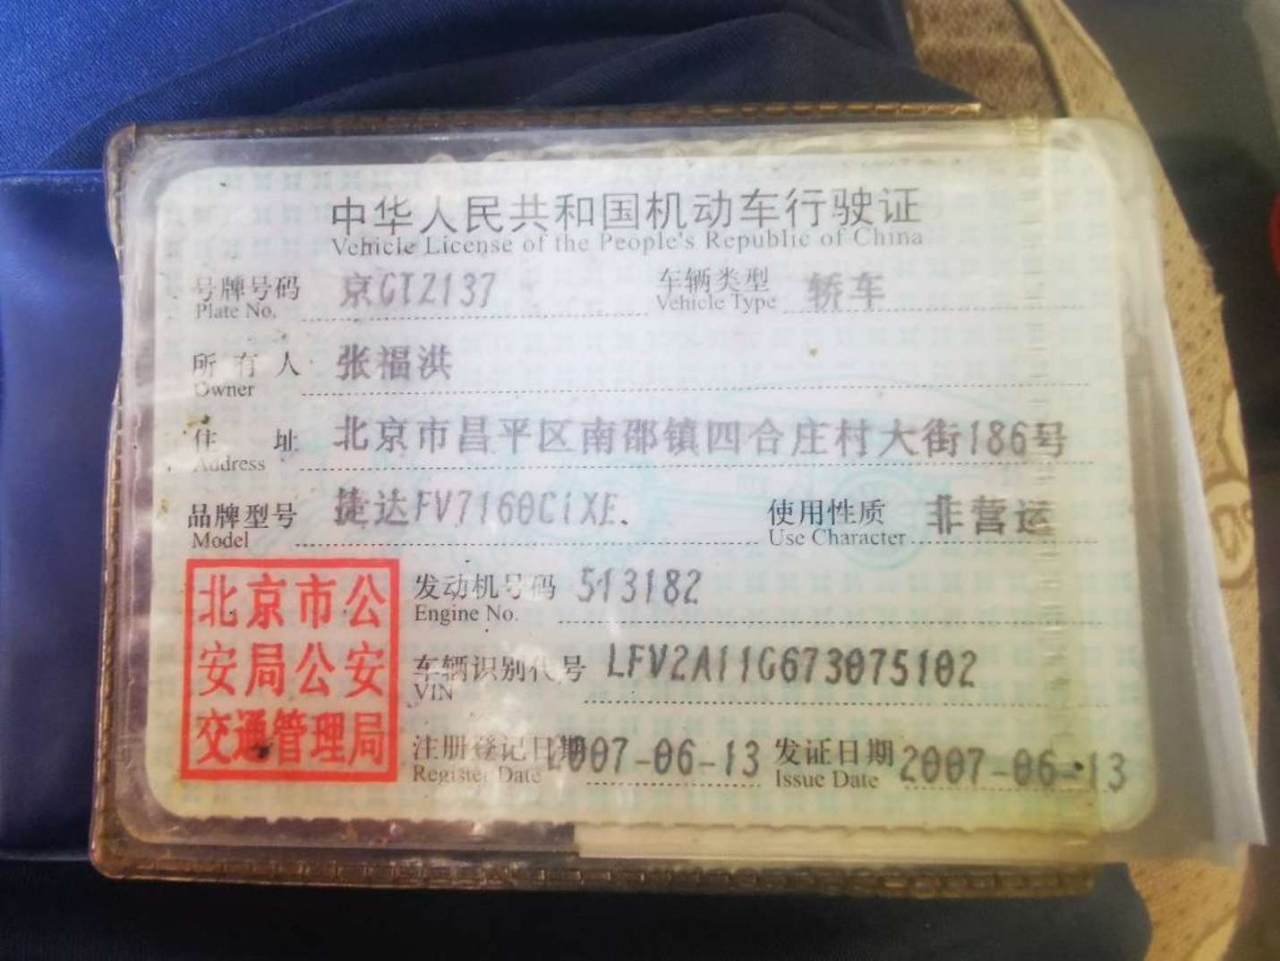 中华人民共和国机动车行驶证
Vehicle License of the People's Republic of China
号牌号码 京CTZ137 车辆类型 轿车
Plate No. Vehicle Type
所有人 张福洪
Owner
住址 北京市昌平区南邵镇四合庄村大街186号
Address
品牌型号 捷达FV7160CiXE. 使用性质 非营运
Model Use Character
北京市公
安局公安
交通管理局
发动机号码 513182
Engine No.
车辆识别代号 LFV2A11G673075102
VIN
注册登记日期 2007-06-13 发证日期 2007-06-13
Register Date Issue Date